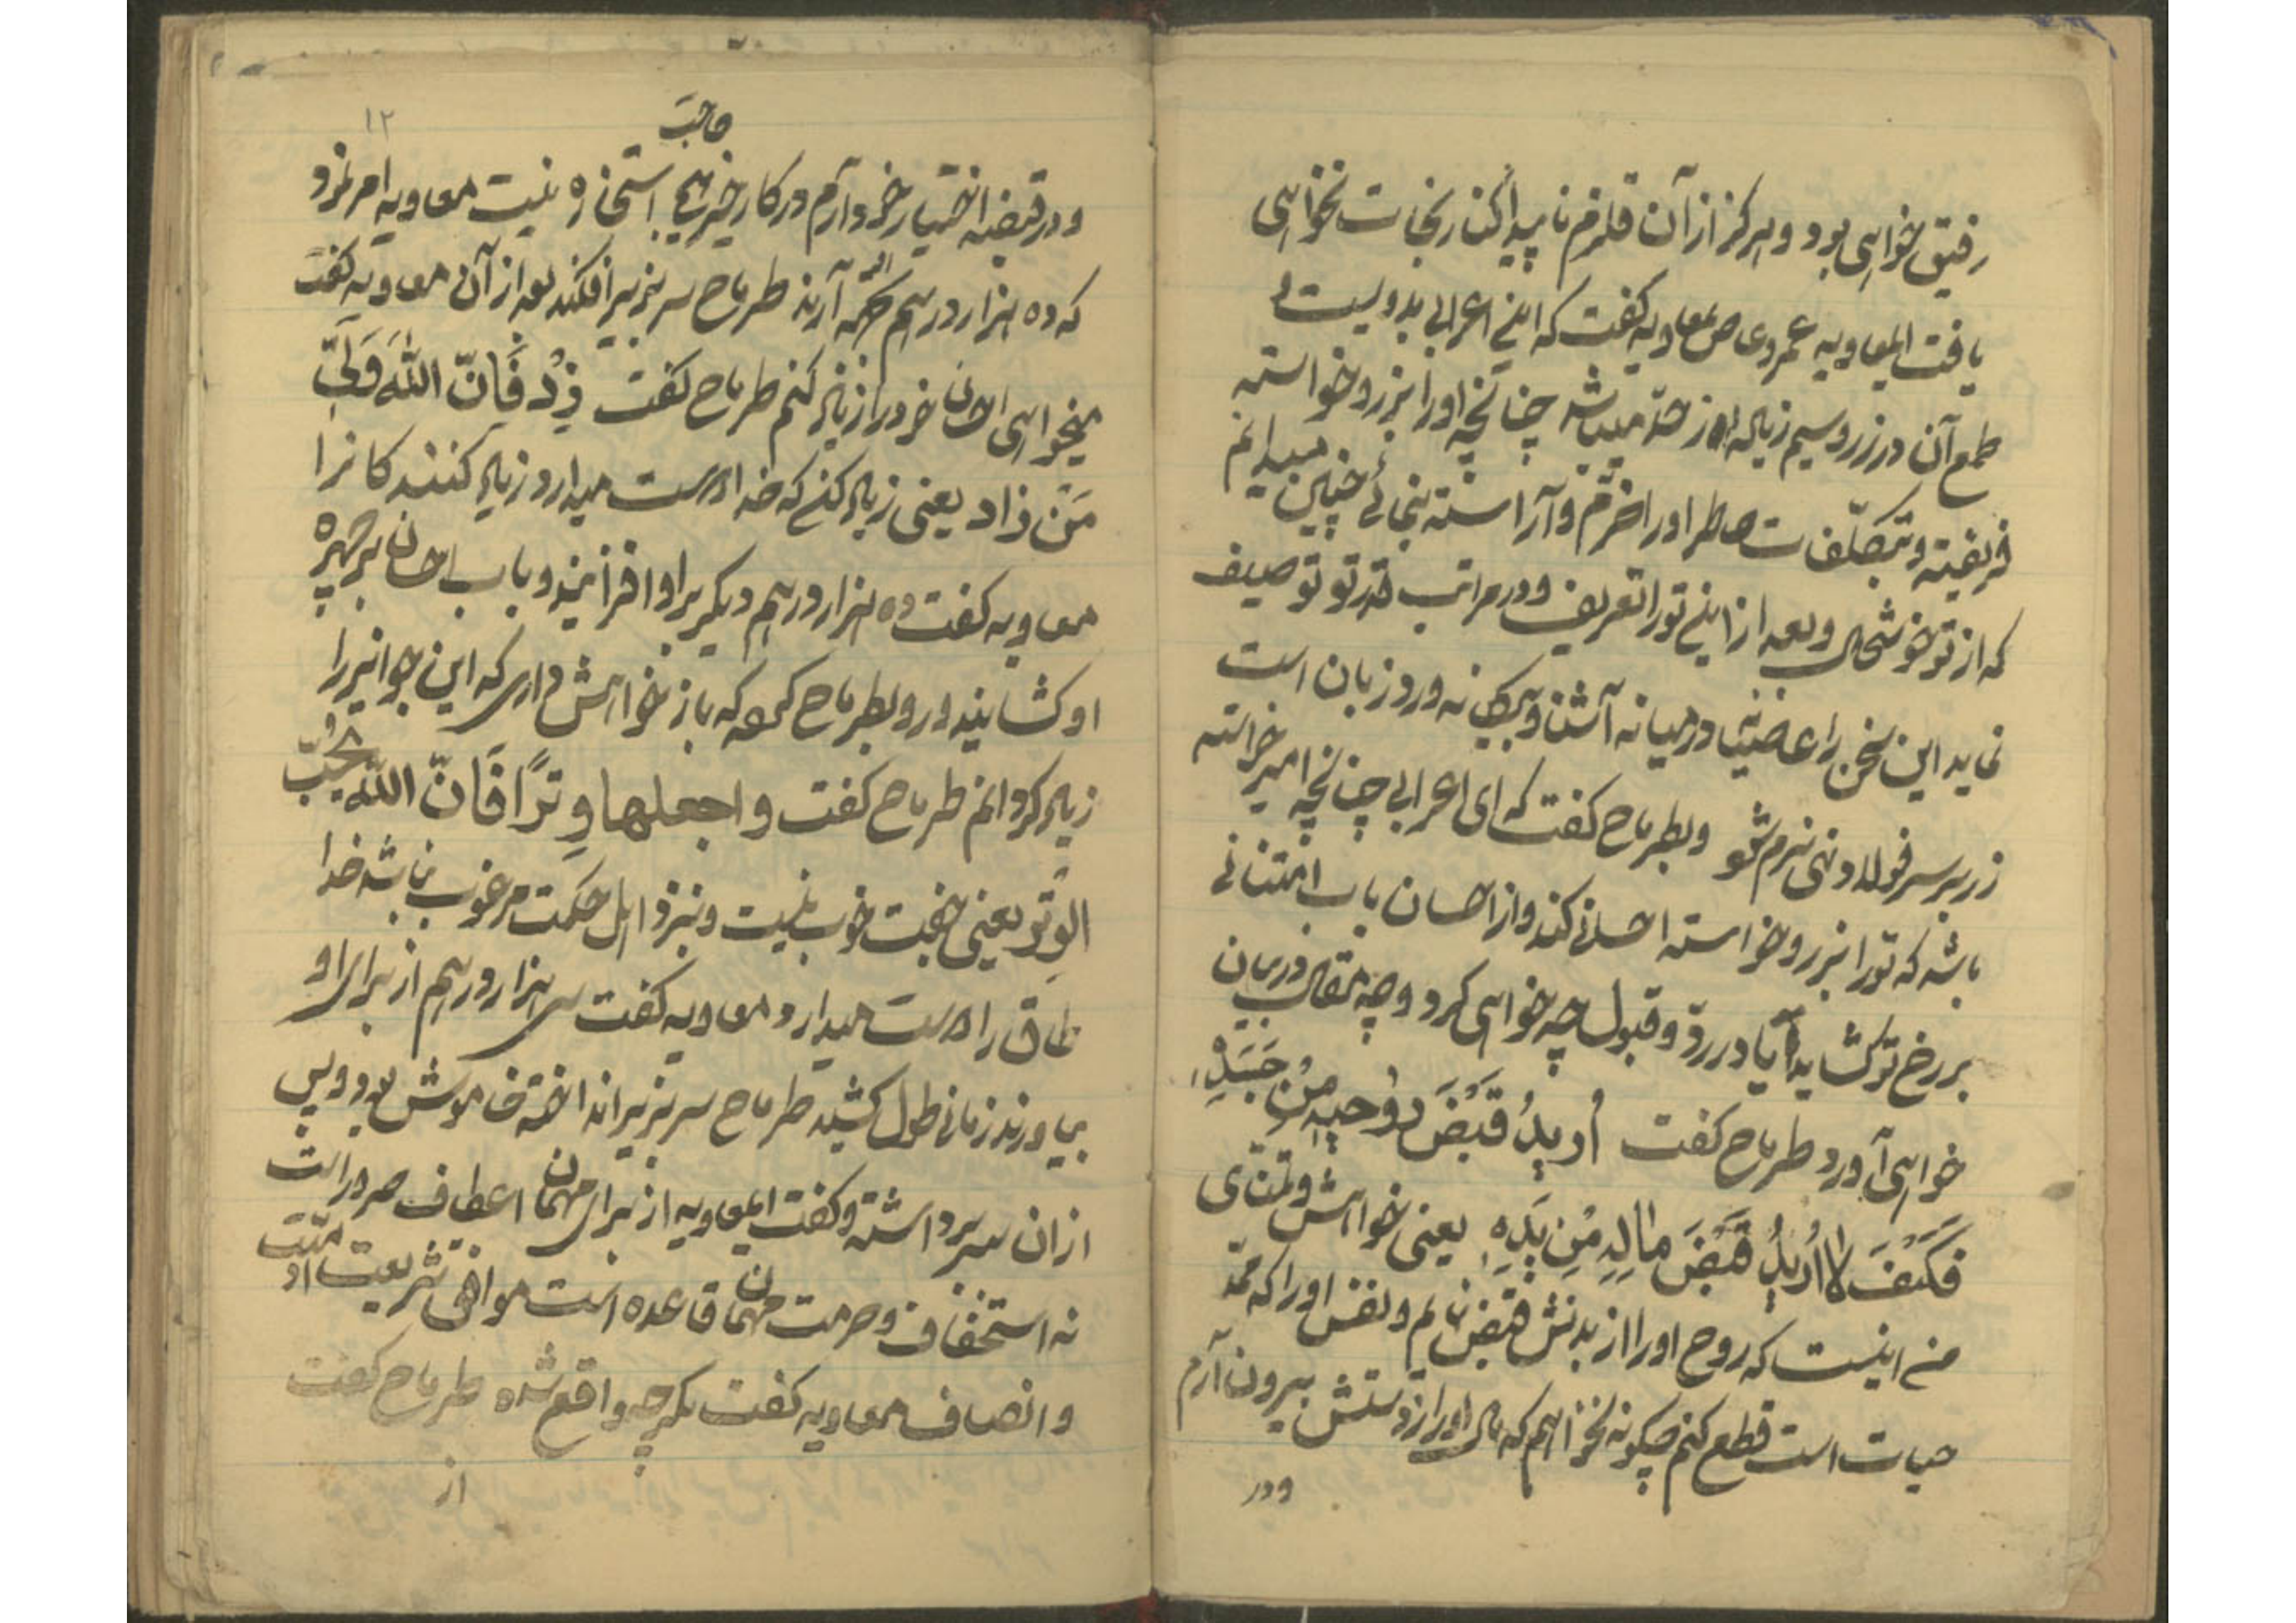 رفیق خواهی بود و هرکز از آن قلزم ناپیدا کنار نجات نخواهی
یافت ایمعاویه عمرو عاص بمعاویه کفت که اینے اعرابی بدویست
طمع آن در زر و سیم زیاده از حدّ میباشد چنانچه اورا بزر و خواسته
فریفته و بتکلّفات خاطر اورا خرّم و آراسته بنمائے چنین میدانم
که از تو خوشحال و بعد از اینے تورا تعریف و در مراتب قدر تو توصیف
نماید این سخن را در میانه آشنا و بیکانه ورد زبان است
زر بر سر فولاد نهی نرم شود و بطرماح کفت که ای اعرابی چنانچه امیر خواسته
باشد که تورا بزر و خواسته احسانے کند و از احسان باب امتنانے
بر رخ تو کشاید آیا در ردّ و قبول چه خواهی کرد و چه مقال در میان
خواهی آورد طرماح کفت اُریدُ قَبْضَ رُوحِهِ مِنْ جَسَدِهِ
فَکَیْفَ لا اُریدُ قَبْضَ مالِهِ مِن یَدِهِ یعنی خواهش و تمنّای
من اینست که روح اورا از بدنش قبض نمایم و نفس اورا که ممدّ
حیات است قطع کنم چکونه نخواهم که مال اورا از دستش بیرون آرم
و در
۱۲
حاجت
و در قبضه اختیار خود آرم در کار خیر هیچ استخاره نیست معاویه امر نمود
که ده هزار درهم آرند طرماح سر بزیر افکند بعد از آن معاویه کفت
میخواهی احسان خود را زیاد کنم طرماح کفت زِدْ فَاِنَّ اللّهَ وَلِیُّ
مَنْ زاد یعنی زیاد کنے که خدا دوست میدارد زیاد کنندکانرا
معاویه کفت ده هزار درهم دیکر بر او افزائید و باب احسان بر چهره
او کشائید و رو بطرماح که باز خواهش داری که این جوائز را
زیاد کردانم طرماح کفت و اجعلها وِتراً فَاِنَّ اللّهَ یُحِبُّ
الوِتْر یعنی جفت خوب نیست و نزد اهل حکمت مرغوب نباشد خدا
طاق را دوست میدارد معاویه کفت سی هزار درهم از برای او
بیاورند زمانی طول کشید طرماح سر بزیر انداخته خاموش بود و پس
از ان سر برداشته و کفت ایمعاویه از برای مهمان اعطاف ضرور است
نه استخفاف و حرمت مهمان قاعده است موافق شریعت و ملّت
و انصاف معاویه کفت مکر چه واقع شده طرماح کفت
از